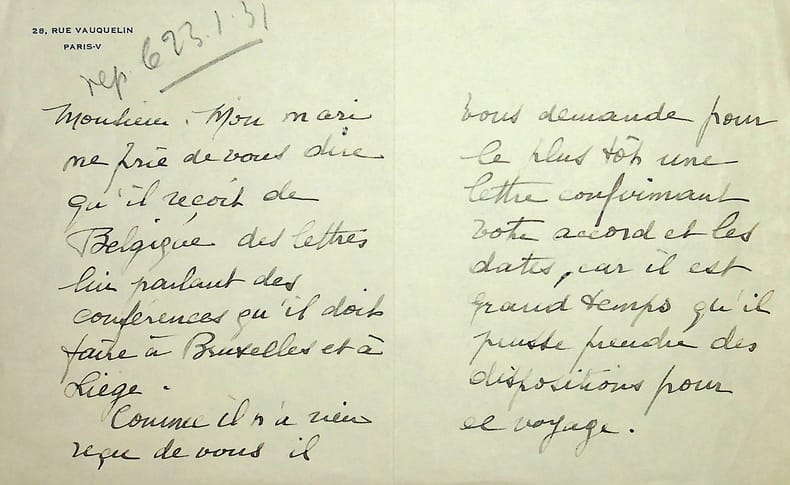 28, RUE VAUQUELIN
PARIS-V
rep. 623.1.31
Monsieur. Mon mari
me prie de vous dire
qu'il reçoit de
Belgique des lettres
lui parlant des
conférences qu'il doit
faire à Bruxelles et à
Liège.
Comme il n'a rien
reçu de vous il
vous demande pour
le plus tôt une
lettre confirmant
votre accord et les
dates, car il est
grand temps qu'il
puisse prendre des
dispositions pour
ce voyage.